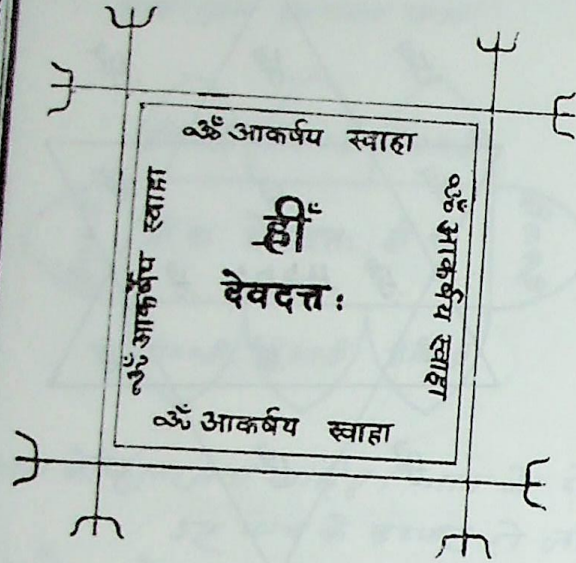 ॐ आकर्षय स्वाहा
ॐ आकर्षय स्वाहा
ह्रीँ
देवदत्तः
ॐ आकर्षय स्वाहा
ॐ आकर्षय स्वाहा